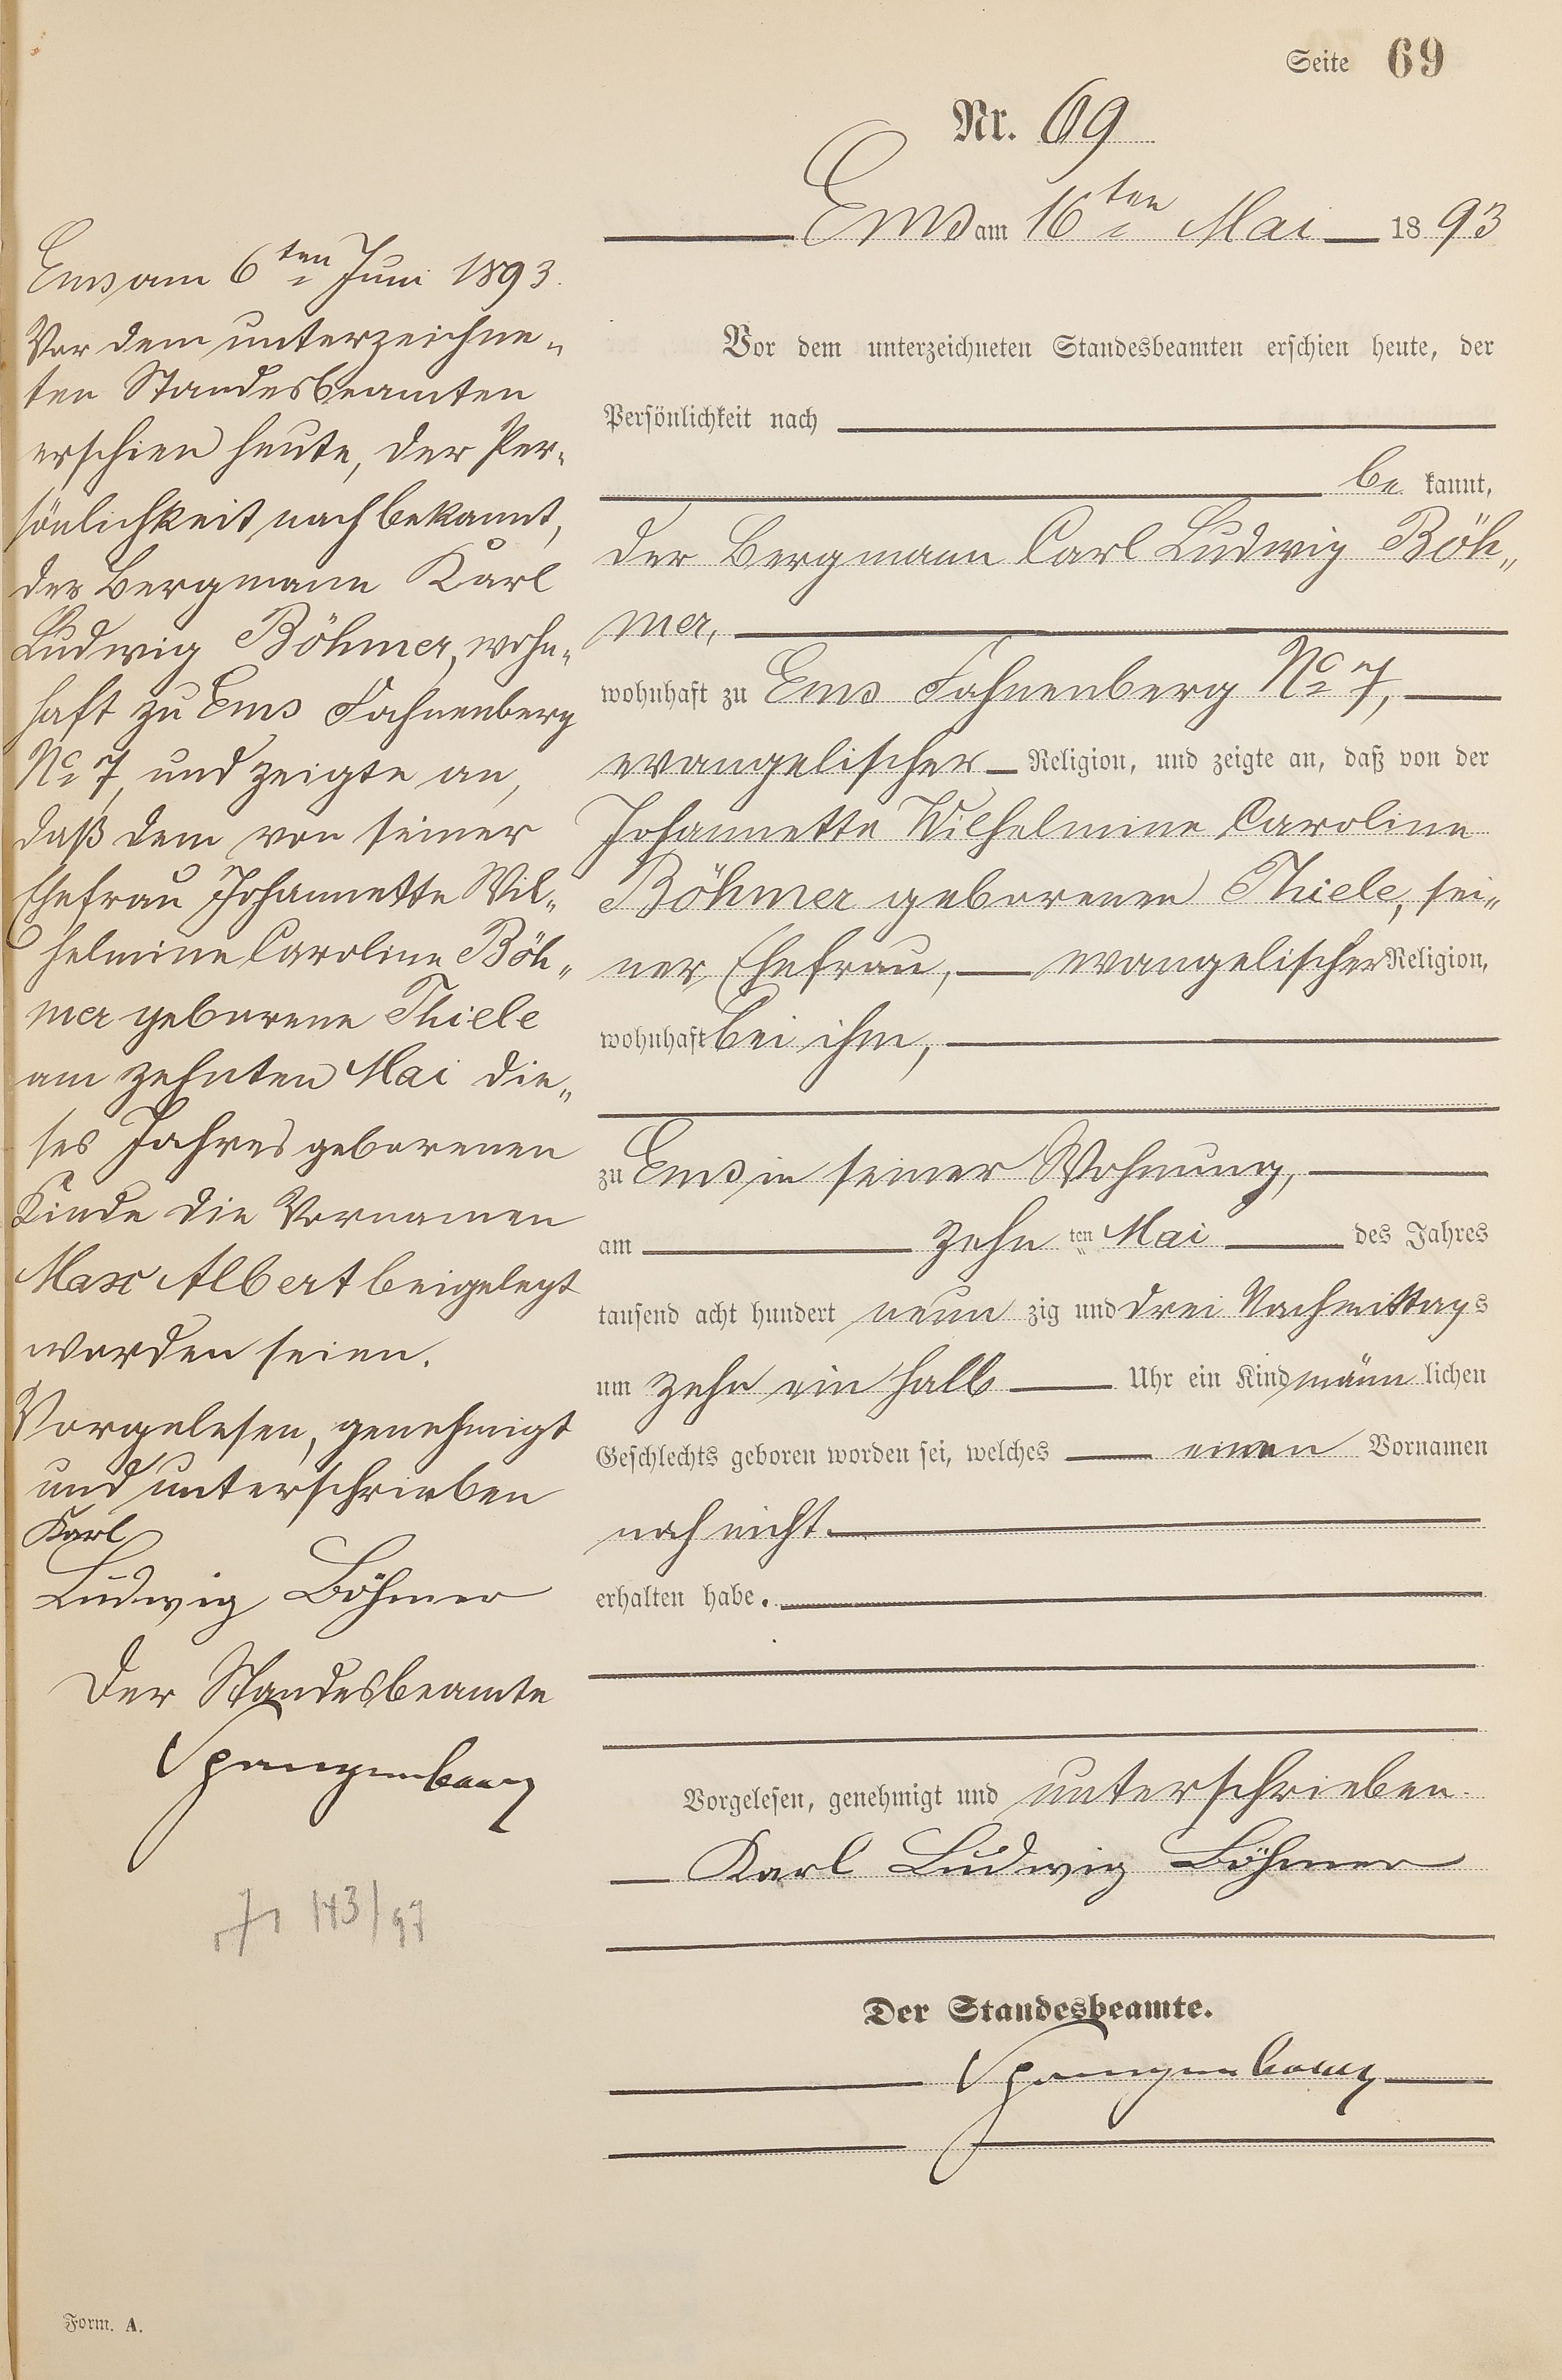 Seite 69
Nr. 69
Ems am 16ten Mai 1893
Vor dem unterzeichneten Standesbeamten erschien heute, der
Persönlichkeit nach
be kannt,
der Bergmann Carl Ludwig Böh„
mer,
wohnhaft zu Ems Fahnenberg No 7,
evangelischer Religion, und zeigte an, daß von der
Johannette Wilhelmine Caroline
Böhmer geborenen Thiele, sei„
ner Ehefrau, evangelischer Religion,
wohnhaft bei ihm,
zu Ems in seiner Wohnung,
am zehn ten Mai des Jahres
tausend acht hundert neun zig und drei Nachmittags
um zehn ein halb Uhr ein Kind männ lichen
Geschlechts geboren worden sei, welches einen Vornamen
noch nicht
erhalten habe.
Vorgelesen, genehmigt und unterschrieben.
Karl Ludwig Böhmer
Der Standesbeamte.
Spangenberg
Ems am 6ten Juni 1893.
Vor dem unterzeichne„
ten Standesbeamten
erschien heute, der Per„
sönlichkeit nach bekannt,
der Bergmann Karl
Ludwig Böhmer, wohn„
haft zu Ems Fahnenberg
No 7, und zeigte an,
daß dem von seiner
Ehefrau Johannette Wil„
helmine Caroline Böh„
mer geborene Thiele
am zehnten Mai die„
ses Jahres geborenen
Kinde die Vornamen
Max Albert beigelegt
worden seien.
Vorgelesen, genehmigt
und unterschrieben
Karl
Ludwig Böhmer
Der Standesbeamte
Spangenberg
143/97
Form. A.